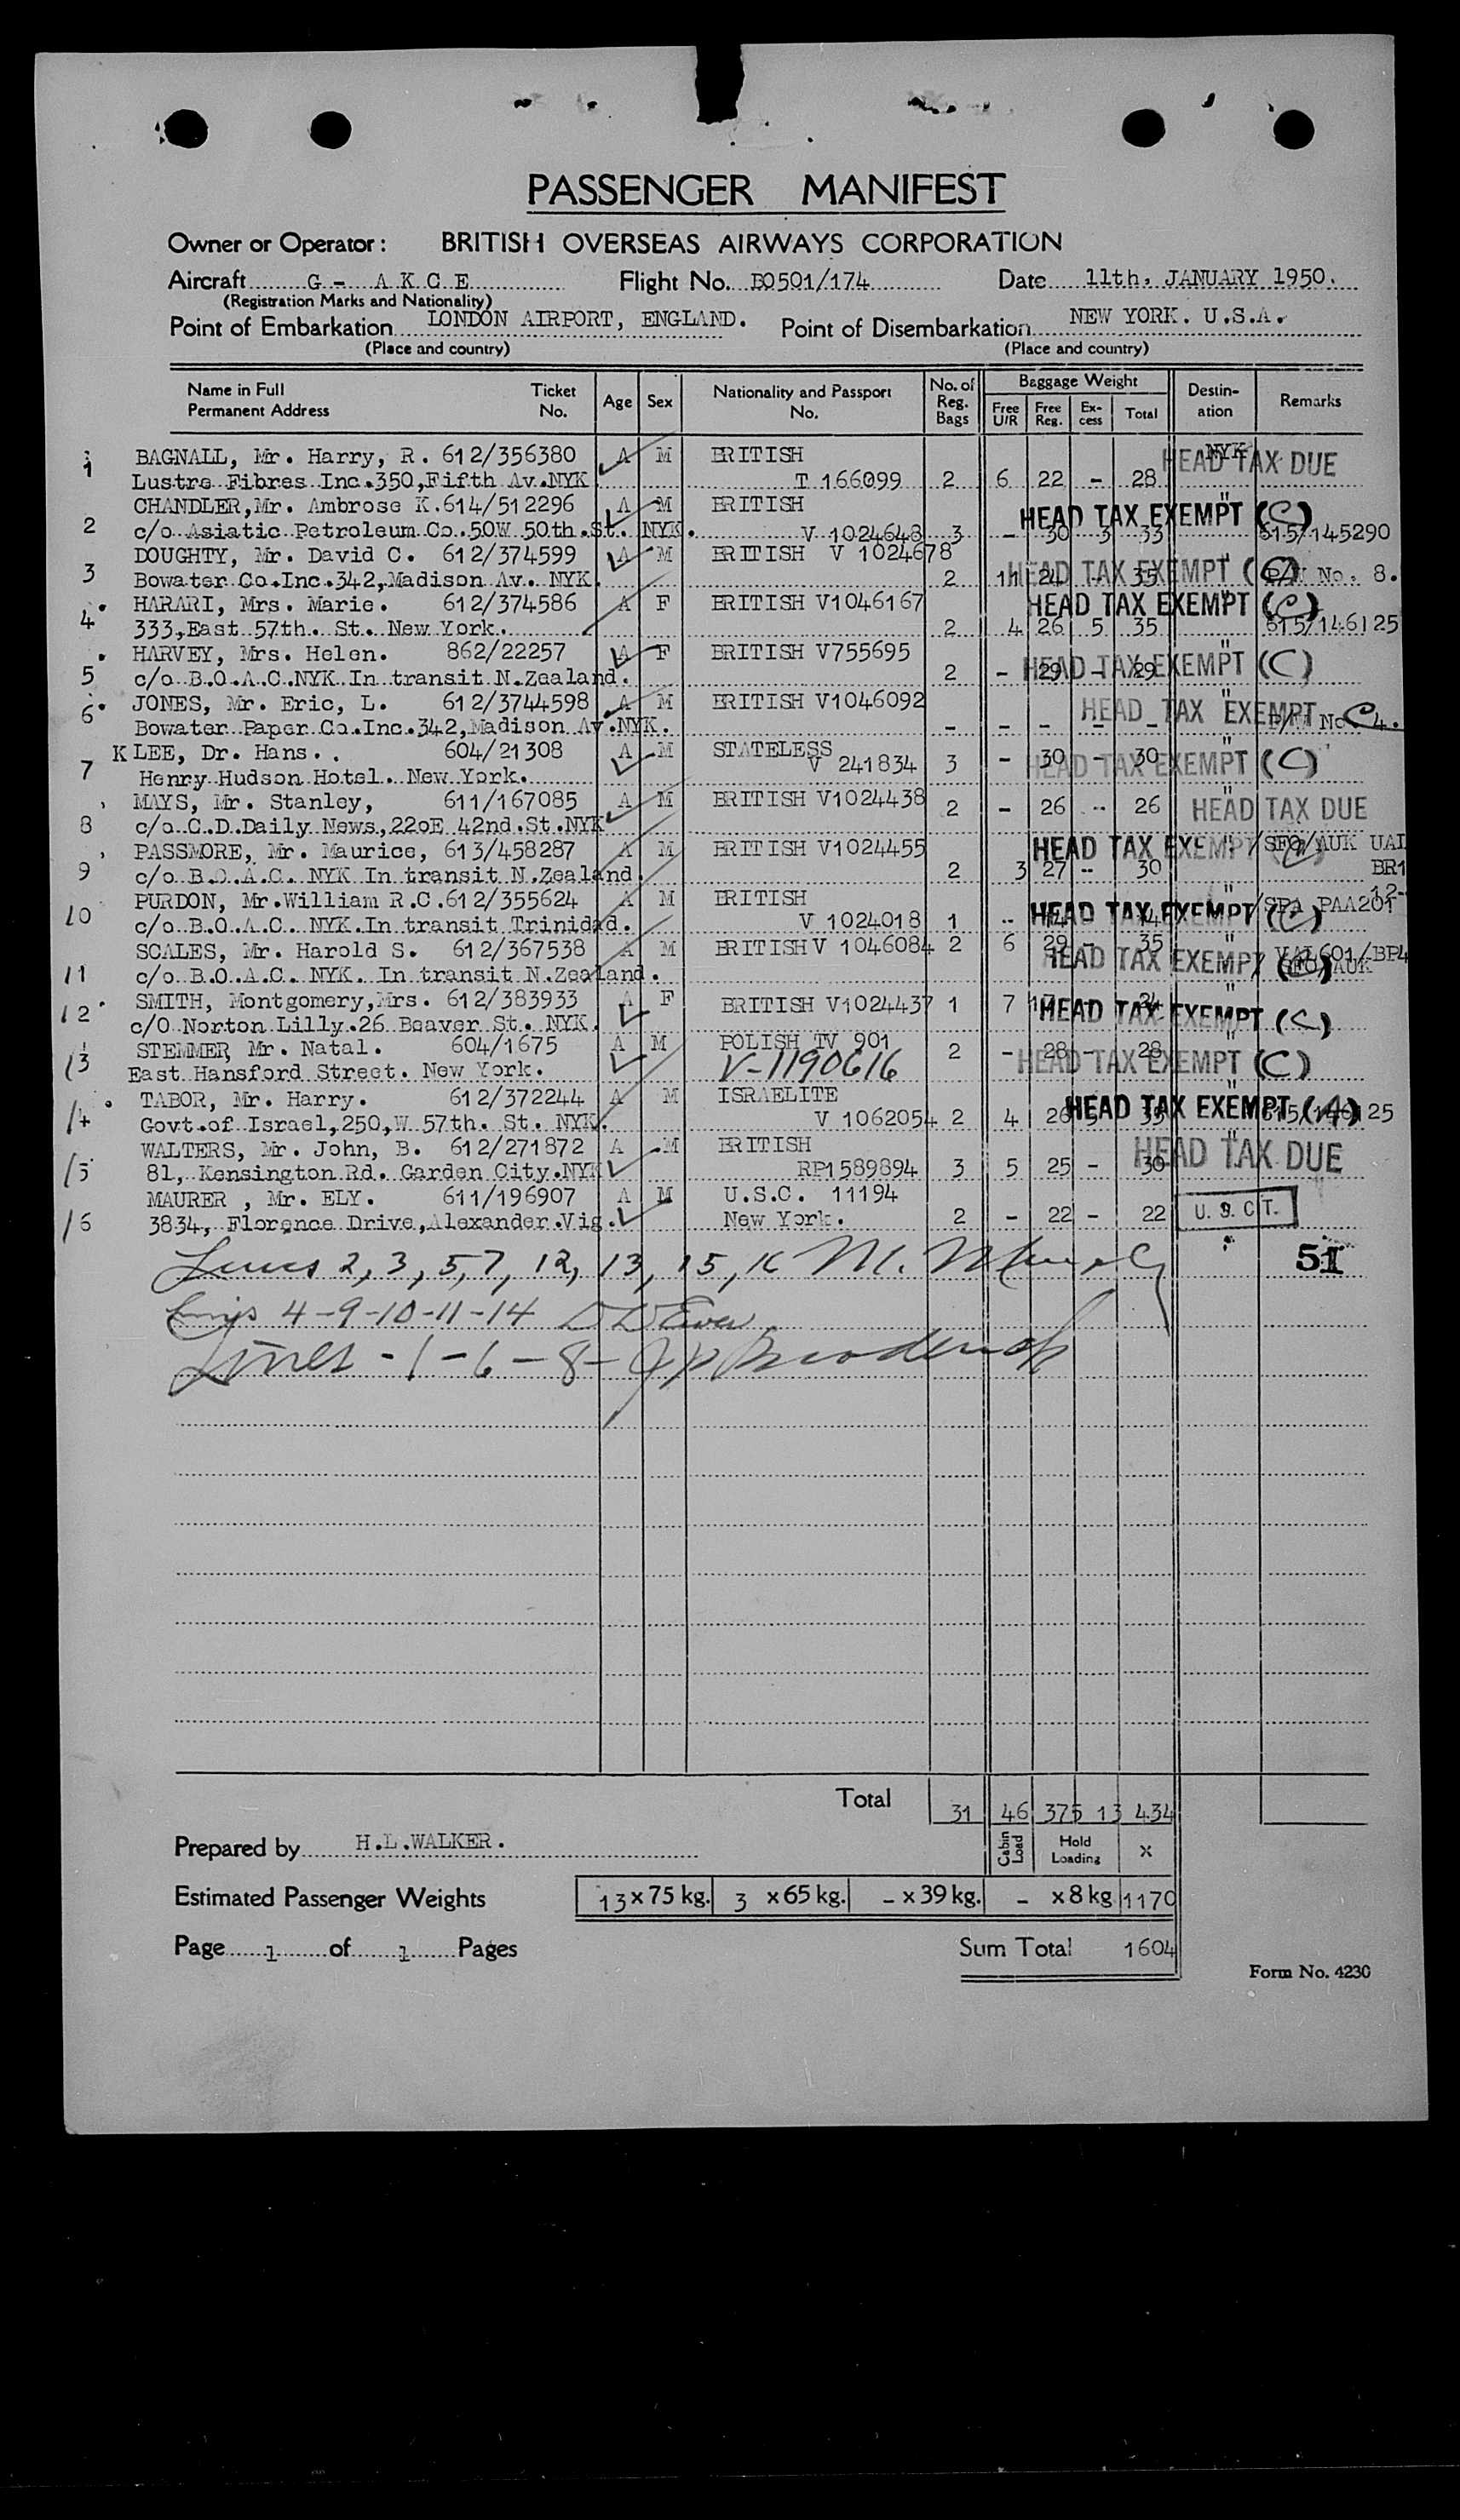 PASSENGER MANIFEST
Owner or Operator: BRITISH OVERSEAS AIRWAYS CORPORATION
Aircraft G - A K G E Flight No. BO501/174 Date 11th. JANUARY 1950.
(Registration Marks and Nationality)
Point of Embarkation LONDON AIRPORT, ENGLAND. Point of Disembarkation NEW YORK. U.S.A.
(Place and country) (Place and country)
Name in Full Permanent Address Ticket No. Age Sex Nationality and Passport No. No. of Reg. Bags Baggage Weight Free U/R Free Reg. Ex-cess Total Destin-ation Remarks
1 BAGNALL, Mr. Harry, R. 612/356380 A M BRITISH NYK HEAD TAX DUE
Lustre Fibres Inc.350,Fifth Av.NYK T 166099 2 6 22 - 28
CHANDLER,Mr. Ambrose K.614/512296 A M BRITISH " HEAD TAX EXEMPT (C)
2 c/o Asiatic Petroleum Co.50W 50th.St. NYK. V 1024648 3 - 30 3 33 615/145290
DOUGHTY, Mr. David C. 612/374599 A M BRITISH V 1024678
3 Bowater Co.Inc.342,Madison Av. NYK. 2 11 24 - 35 HEAD TAX EXEMPT (C) No. 8.
HARARI, Mrs. Marie. 612/374586 A F BRITISH V1046167 HEAD TAX EXEMPT (C)
4 333,East 57th. St. New York. 2 4 26 5 35 615/146125
HARVEY, Mrs. Helen. 862/22257 A F BRITISH V755695 "
5 c/o B.O.A.C.NYK In transit N.Zealand. 2 - 29 - 29 HEAD TAX EXEMPT (C)
JONES, Mr. Eric, L. 612/3744598 A M BRITISH V1046092 "
6 Bowater Paper Co.Inc.342,Madison Av.NYK. - - - - - HEAD TAX EXEMPT No C 4.
KLEE, Dr. Hans. 604/21308 A M STATELESS "
7 Henry Hudson Hotel. New York. V 241834 3 - 30 - 30 HEAD TAX EXEMPT (C)
MAYS, Mr. Stanley, 611/167085 A M BRITISH V1024438 2 - 26 - 26 " HEAD TAX DUE
8 c/o C.D.Daily News,22oE 42nd.St.NYK
PASSMORE, Mr. Maurice, 613/458287 A M BRITISH V1024455 HEAD TAX EXEMPT "/SFO/AUK UAL
9 c/o B.O.A.C. NYK In transit N.Zealand. 2 3 27 - 30 BR1
PURDON, Mr.William R.C.612/355624 A M BRITISH " PAA201
10 c/o B.O.A.C. NYK.In transit Trinidad. V 1024018 1 - 14 - 14 HEAD TAX EXEMPT (C)
SCALES, Mr. Harold S. 612/367538 A M BRITISH V 1046084 2 6 29 - 35 " UAL601/BP4
11 c/o B.O.A.C. NYK. In transit N.Zealand. HEAD TAX EXEMPT (C) AUK
SMITH, Montgomery,Mrs. 612/383933 A F BRITISH V1024437 1 7 17 24 "
12 c/O Norton Lilly.26 Beaver St. NYK. HEAD TAX EXEMPT (C)
STEMMER, Mr. Natal. 604/1675 A M POLISH TV 901 2 - 28 - 28 "
13 East Hansford Street. New York. V-1190616 HEAD TAX EXEMPT (C)
TABOR, Mr. Harry. 612/372244 A M ISRAELITE " HEAD TAX EXEMPT (A)
14 Govt.of Israel,250,W 57th. St. NYK. V 1062054 2 4 26 5 35 615/146125
WALTERS, Mr. John, B. 612/271872 A M BRITISH " HEAD TAX DUE
15 81, Kensington Rd. Garden City.NYK RP1589894 3 5 25 - 30
MAURER , Mr. ELY. 611/196907 A M U.S.C. 11194
16 3834, Florence Drive,Alexander.Vig. New York. 2 - 22 - 22 U. S. CIT.
Lines 2, 3, 5, 7, 12, 13, 15, 16 51
Lines 4-9-10-11-14
Lines -1-6-8-
Total 31 46 375 13 434
Prepared by H.L.WALKER. Cabin Load Hold Loading x
Estimated Passenger Weights 13 x 75 kg. 3 x 65 kg. - x 39 kg. - x 8 kg 1170
Page 1 of 1 Pages Sum Total 1604
Form No. 4230